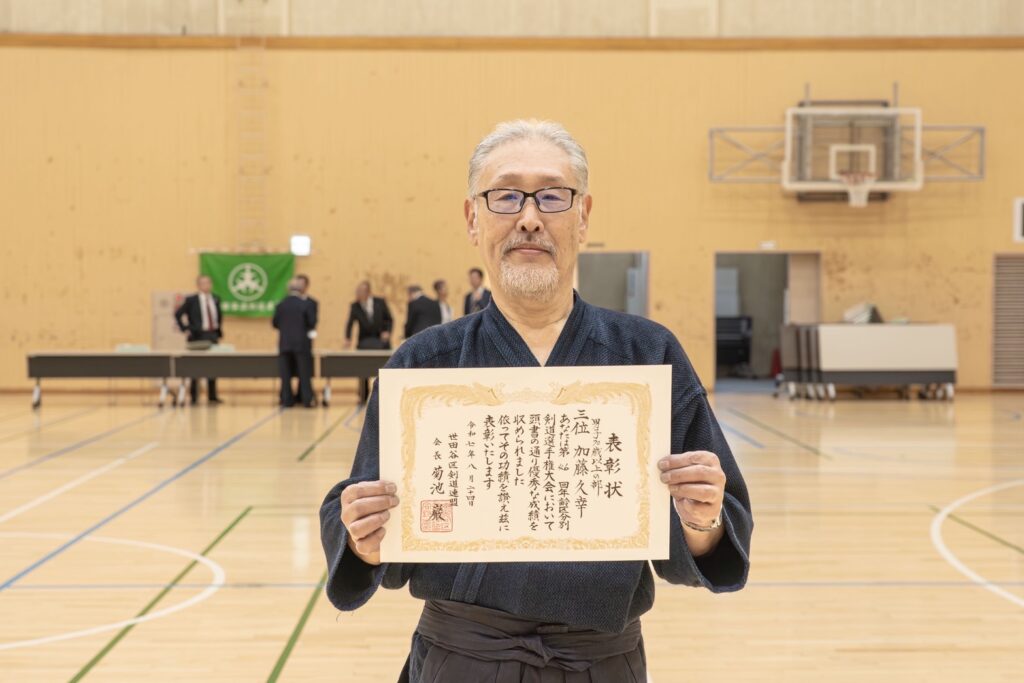 表彰状
男子70歳以上の部
三位 加藤久幸
あなたは第 回年齢区分別
剣道選手大会において
頭書の通り優秀な成績を
収められました
依ってその功績を讃え茲に
表彰いたします
令和七年八月二十四日
世田谷区剣道連盟
会長 菊池 巌